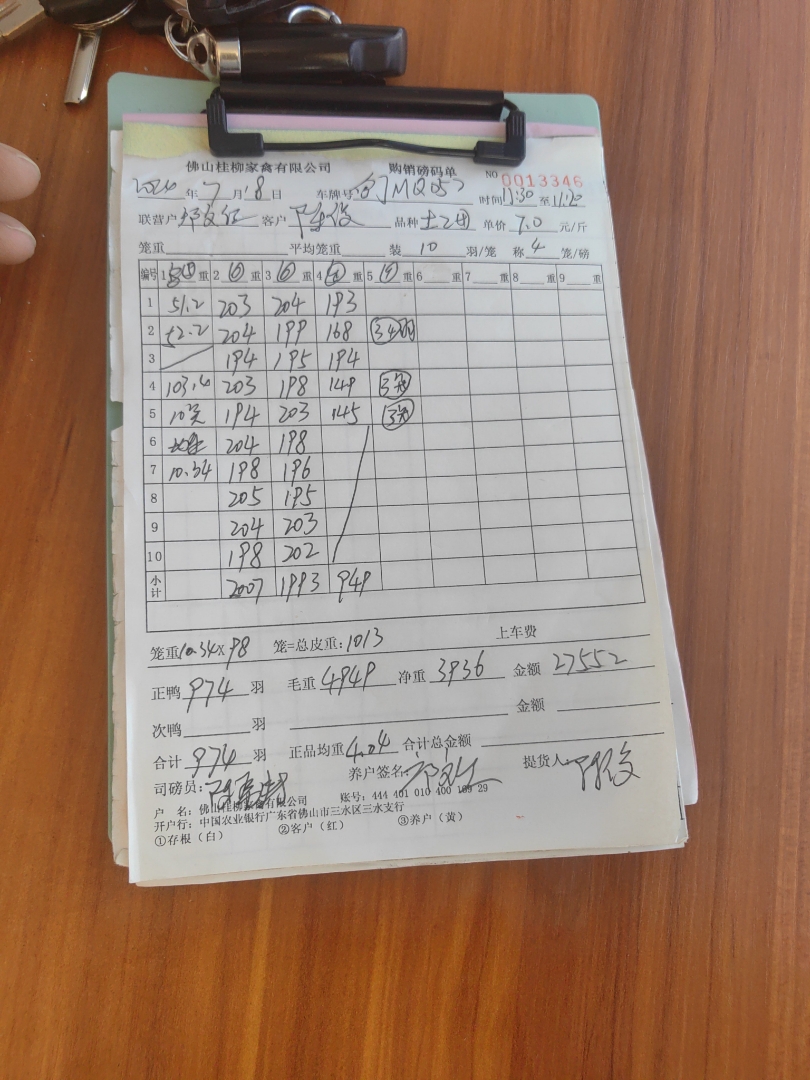 佛山桂柳家禽有限公司 购销磅码单 NO 0013346
2024年7月18日 车牌号 MQ057 时间11:30至11:20
联营户 客户 品种土2 单价7.0元/斤
笼重 平均笼重 装10羽/笼 称4笼/磅
编号 1 重 2 重 3 重 4 重 5 重 6 重 7 重 8 重 9 重
1 51.2 203 204 193
2 52.2 204 199 168 34羽
3 194 195 194
4 103.4 203 198 149 3笼
5 10笼 194 203 145 3笼
6 204 198
7 10.34 198 196
8 205 195
9 204 203
10 198 202
小计 2007 1993 949
笼重10.34×98 笼=总皮重:1013 上车费
正鸭974羽 毛重4949 净重3936 金额27552
次鸭 羽 金额
合计974羽 正品均重4.04 合计总金额
司磅员: 养户签名: 提货人:
户 名:佛山桂柳家禽有限公司 账号:444 401 010 400 189 29
开户行:中国农业银行广东省佛山市三水区三水支行
①存根(白) ②客户(红) ③养户(黄)